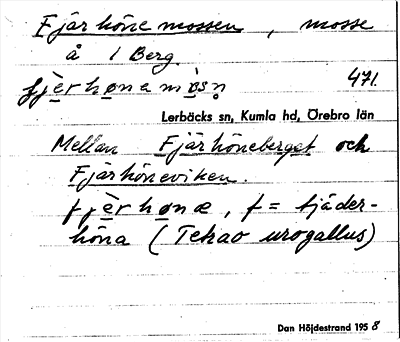 Fjärhönemossen, mosse
å 1 Berg.
fjèrhønemòsn̥ 471.
Lerbäcks sn, Kumla hd, Örebro län
Mellan Fjärhöneberget och
Fjärhöneviken.
fjèrhønæ, f = fjäder-
höna (Tetrao urogallus)
Dan Höjdestrand 1958